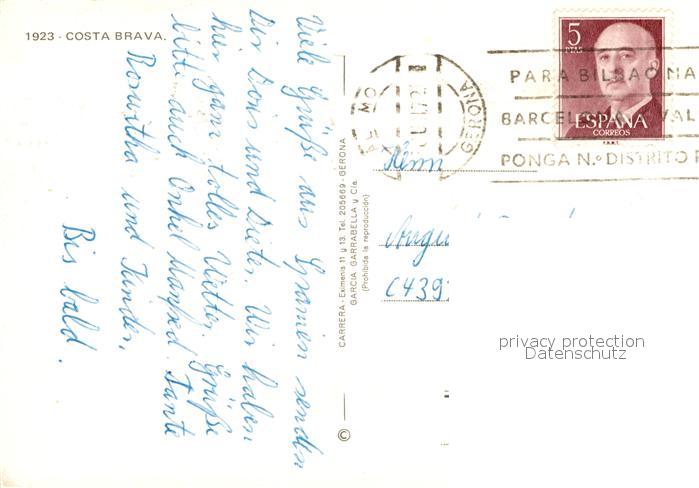 1923 - COSTA BRAVA.
Viele Grüße aus Spanien senden
Dir Doris und Dieter. Wir haben
hier ganz tolles Wetter. Grüße
bitte auch Onkel Manfred. Tante
Roswitha und Kinder.
Bis bald.
CARRERA - Eximenis 11 y 13. Tel. 205669 - GERONA
GARCIA GARRABELLA y Cía.
(Prohibida la reproducción)
©
5
PTAS
ESPAÑA
CORREOS
F.N.M.T.
GERONA
PARA BILBAO MA
BARCEL VAL
PONGA N.º DISTRITO P
privacy protection
Datenschutz